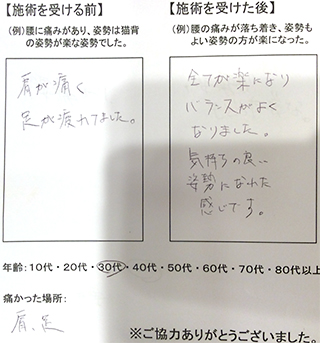 【施術を受ける前】
(例)腰に痛みがあり、姿勢は猫背
の姿勢が楽な姿勢でした。
肩が痛く
足が疲れてました。
【施術を受けた後】
(例)腰の痛みが落ち着き、姿勢も
よい姿勢の方が楽になった。
全てが楽になり
バランスがよく
なりました。
気持ちの良い
姿勢になれた
感じです。
年齢:10代・20代・30代・40代・50代・60代・70代・80代以上
痛かった場所:
肩、足
※ご協力ありがとうございました。